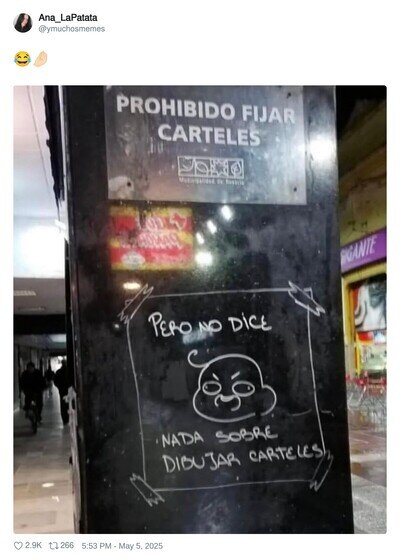 Ana_LaPatata
@ymuchosmemes
😂🤌🏻
PROHIBIDO FIJAR
CARTELES
Municipalidad de Rosario
PERO NO DICE
NADA SOBRE
DIBUJAR CARTELES
GIGANTE
2.9K 266 5:53 PM - May 5, 2025